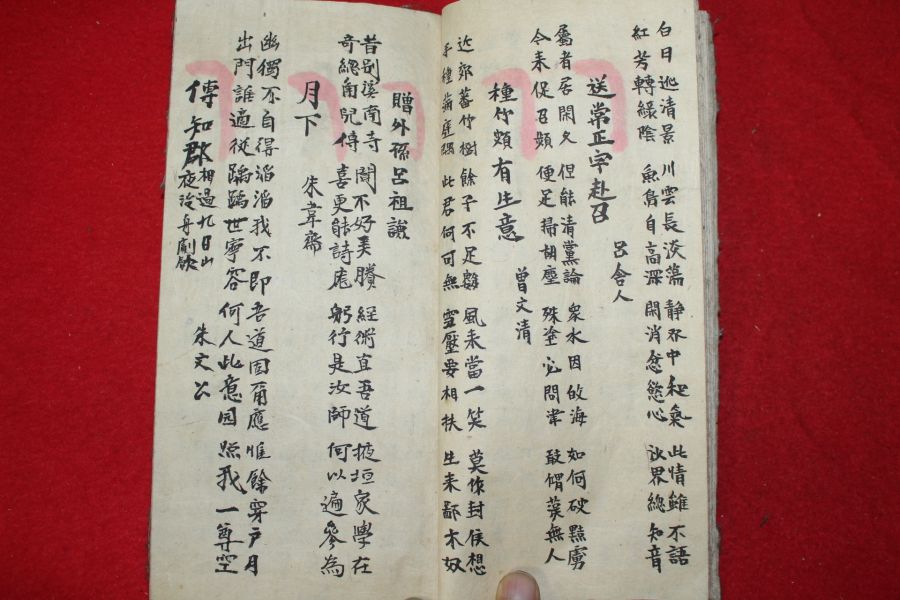 白日巡清景 川雲長淡蕩 靜〼中和氣 此情雖不語
紅芳轉綠陰 魚鳥自高深 閑消忿慾心 汝界總知音
送常正字赴召 呂舍人
屬者居閑久 但能清黨論 衆水因攸海 如何破黠虜
令來促召頻 便足掃胡塵 殊塗必問津 敢謂漢無人
種竹頗有生意 曾文清
近郊蕃竹樹 餘子不足數 風來當一笑 莫作封侯想
手種滿庭隅 此君何可無 雪壓要相扶 生來鄙木奴
贈外孫呂祖謙
昔別溪南寺 聞不好美騰 經術直吾道 掖垣家學在
奇總角兒傳 喜更能詩應 躬行是汝師 何以遍參為
月下 朱韋齋
幽獨不自得 滔滔我不即 吾道固爾應 惟餘穿戶月
出門誰適從 踽踽世寧容 何人此意因 照我一尊空
傅知郡 相過九日山
夜泛舟劇飲 朱文公